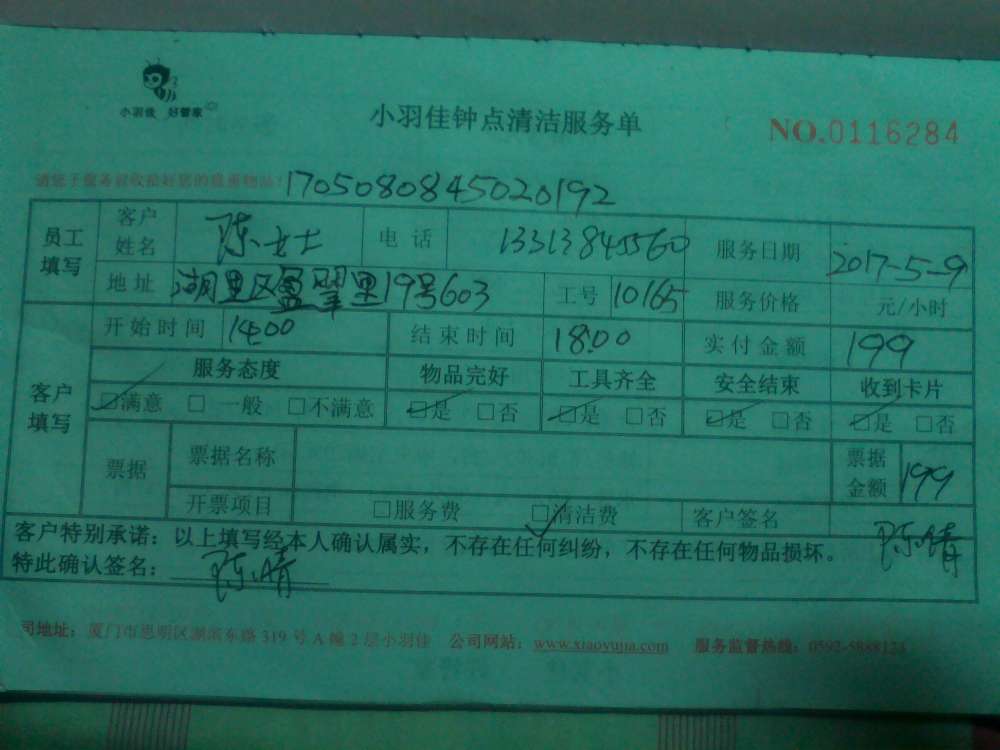 小羽佳 好管家
小羽佳钟点清洁服务单
NO.0116284
请您于服务前收拾好您的贵重物品!
1705080845020192
员工填写 客户姓名 陈女士 电话 13313845560 服务日期 2017-5-9
地址 湖里区盈翠里19号603 工号 10165 服务价格 元/小时
客户填写 开始时间 14:00 结束时间 18:00 实付金额 199
服务态度 物品完好 工具齐全 安全结束 收到卡片
☑满意 □一般 □不满意 ☑是 □否 ☑是 □否 ☑是 □否 ☑是 □否
票据 票据名称 票据金额 199
开票项目 □服务费 ☑清洁费 客户签名 陈婧
客户特别承诺：以上填写经本人确认属实，不存在任何纠纷，不存在任何物品损坏。
特此确认签名： 陈婧
司地址：厦门市思明区湖滨东路319号A幢2层小羽佳 公司网站：www.xiaoyujia.com 服务监督热线：0592-5888123